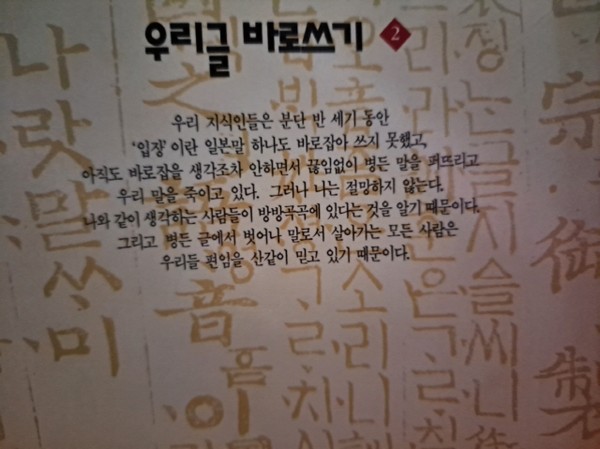 우리글 바로쓰기 2
우리 지식인들은 분단 반 세기 동안
'입장'이란 일본말 하나도 바로잡아 쓰지 못했고,
아직도 바로잡을 생각조차 안하면서 끊임없이 병든 말을 퍼뜨리고
우리 말을 죽이고 있다. 그러나 나는 절망하지 않는다.
나와 같이 생각하는 사람들이 방방곡곡에 있다는 것을 알기 때문이다.
그리고 병든 글에서 벗어나 말로서 살아가는 모든 사람은
우리들 편임을 산같이 믿고 있기 때문이다.